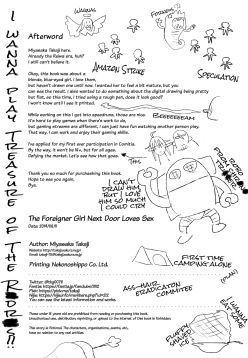 I WANNA PLAY TREASURE OF THE R D R !!
WANNAB
Afterword
Miyasaka Takaji here.
Already the Reiwa era, huh?
I still can't believe it.
AMAZON STRIKE
SPECULATION
Okay, this book was about a
blonde, blue-eyed girl. I love them,
but haven't drawn one until now. I wanted her to feel a bit mature, but you
can see the result. I also wanted to do something about the digital drawing being pretty
boring, so this time, I tried using a rough pen, does it look good?
I won't know until I see it printed.
BEEEEEEAM
While working on this I got into speedruns, those are nice.
It's hard to play games when there's work to do,
but gaming streams are different, I can just have fun watching another person play.
That way, I can work and enjoy their gaming skills.
THIS
I've applied for my first ever participation in Comitia.
By the way, it won't be 18+, but for all ages.
Defying the market. Let's see how that goes.
Thank you so much for purchasing this book.
Hope to see you again.
Bye.
I CAN'T
DRAW HIM,
BUT I LOVE
HIM SO MUCH
I COULD CRY
The Foreigner Girl Next Door Loves Sex
FIRST TIME
CAMPING ALONE
(PLAN)
Author: Miyasaka Takaji
Printing: Nekonoshippo Co. Ltd.
ASS-HAIR
ERADICATON
COMMITEE
You can see the latest information and works.
Those under 18 years old are prohibited from reading or purchasing this book.
Unauthorized use, distribution, reprinting, or upload to the internet of the book is forbidden.
This story is fictional. The characters, organizations, events, etc,
have no relation to any real entities.
I WANNA
FLUFFY
SHAVED
ICE